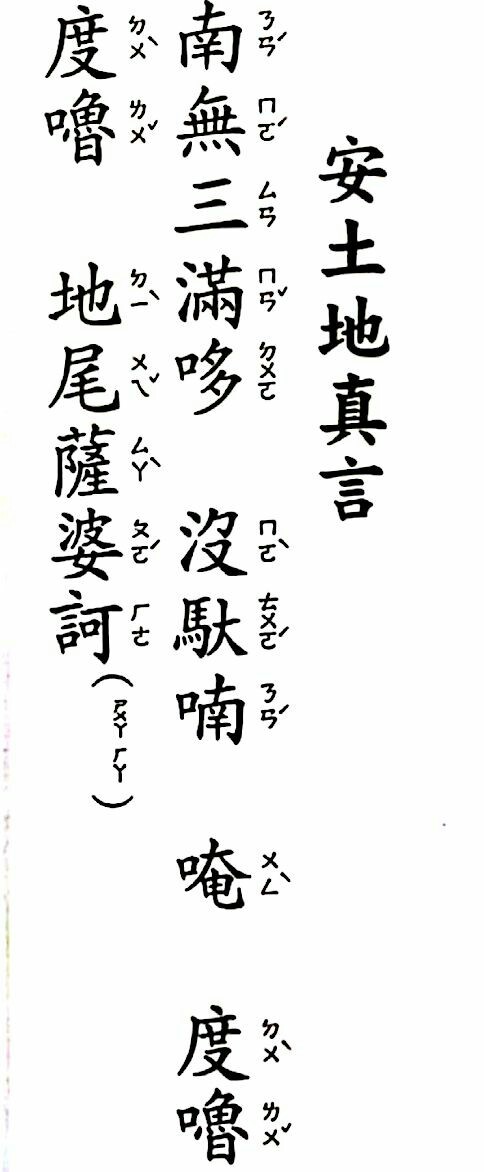 安土地真言
南ㄋㄢˊ無ㄇㄛˊ三ㄙㄢ滿ㄇㄢˇ哆ㄉㄨㄛ 沒ㄇㄛˋ馱ㄊㄨㄛˊ喃ㄋㄢˊ 唵ㄨㄥˋ 度ㄉㄨˋ嚕ㄌㄨˇ
度ㄉㄨˋ嚕ㄌㄨˇ 地ㄉㄧˋ尾ㄨㄟˇ薩ㄙㄚˋ婆ㄆㄛˊ訶ㄏㄜ(ㄕㄨㄚ ㄏㄚ)